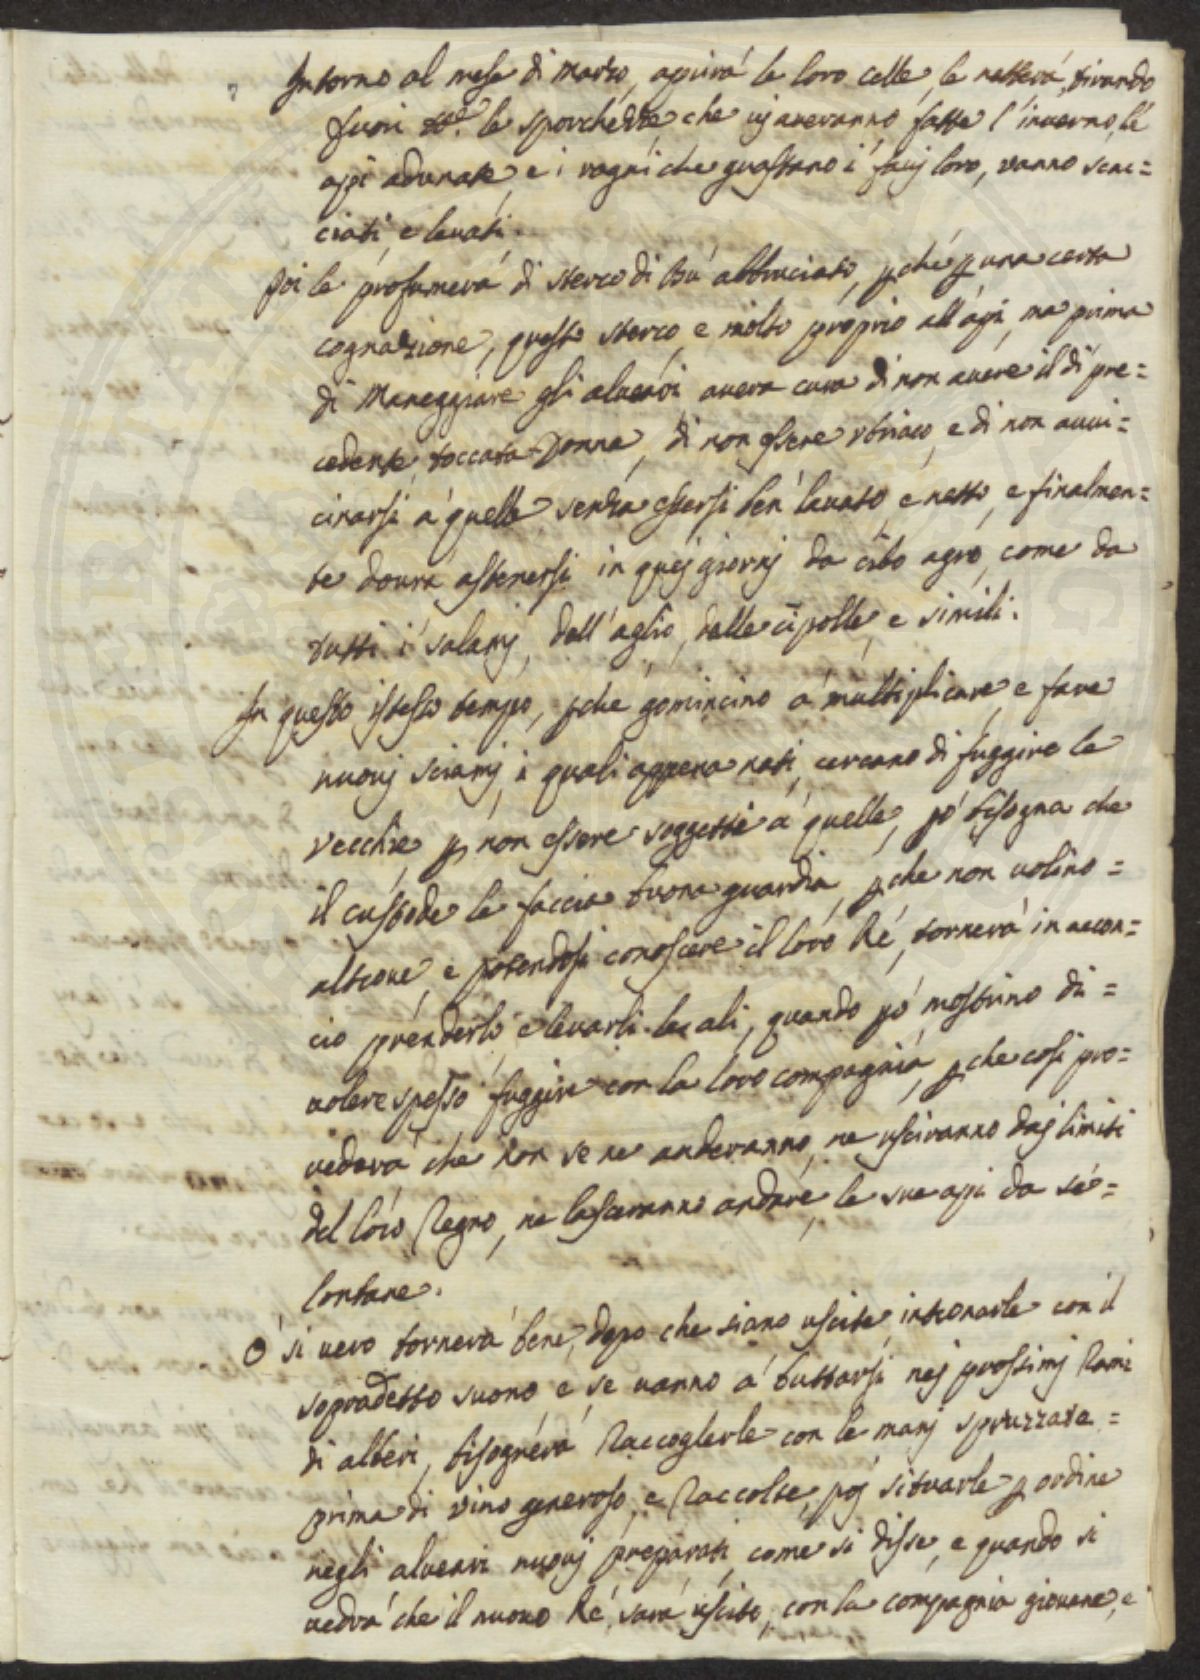 Intorno al mese di Marzo, aprirà le loro celle, le netterà, tirando
fuori tte. le sporchezze, che vj averanno fatte l'inverno, le
api adunate, e i ragni che guastano i favj loro, vanno scac=
ciati, e levati.
Poi le profumerà di sterco di Bu abbruciato, pché p una certa
cognazione, questo sterco, e molto proprio all'api, ma prima
di Maneggiare gli alveari averà cura di non avere il dì pre=
cedente toccata Donna, di non essere vbriaco, e di non avvi=
cinarsi à quelle senza essersi ben lavato, e netto, e finalmen=
te dovrà astenersi in quej giornj da cibo agro, come da
tutti i salamj, dell'aglio, delle cipolle, e simili.
In questo istesso tempo, pché gomincino à multiplicare, e fare
nuovj sciamj, i quali appena nati, cercano di fuggire le
vecchie, p non essere soggette à quelle, pò bisogna che
il custode le faccia buona guardia, pche non volino=
altrove, e potendosi conoscere il loro Ré, tornerà in accon=
cio prenderlo, e levarli le ali, quando pò mostrino di=
volere spesso fuggire con la loro compagnia, pche così pro=
vederà che non se ne anderanno, ne usciranno daj limiti
del loro Regno, ne lasceranno andare, le sue api da sé=
lontane.
O' si vero tornerà bene, dopo che siano uscite, intronarle con il
sopradetto suono, e se vanno à buttarsi nej prossimj Rami
di alberi, bisognerà Raccoglerle con le manj spruzzate=
prima di vino generoso, e Raccolte, poj situarle p ordine
negli alveari nuovj preparati, come si disse, e quando si
vedrà che il nuovo Ré, sarà uscito, con la compagnia giovane, e